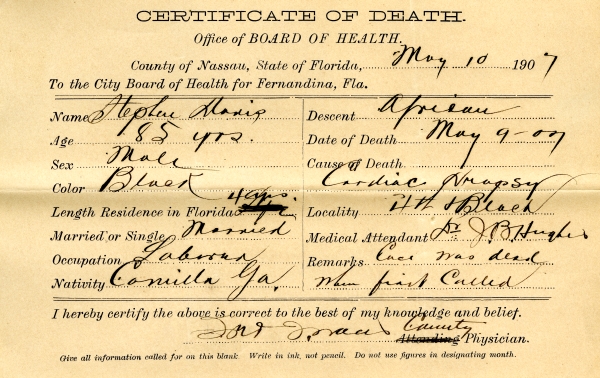 CERTIFICATE OF DEATH.
Office of BOARD OF HEALTH.
County of Nassau, State of Florida, May 10 1907
To the City Board of Health for Fernandina, Fla.
Name Stephen Davis
Age 85 yrs.
Sex Male
Color Black
Length Residence in Florida 4 yrs.
Married or Single Married
Occupation Laborer
Nativity Camilla Ga.
Descent African
Date of Death May 9-07
Cause of Death
Cardiac Dropsy
Locality 4th & Beach
Medical Attendant Dr J. B. Hughes
Remarks Case was dead
when first Called
I hereby certify the above is correct to the best of my knowledge and belief.
County
Attending Physician.
Give all information called for on this blank Write in ink, not pencil. Do not use figures in designating month.